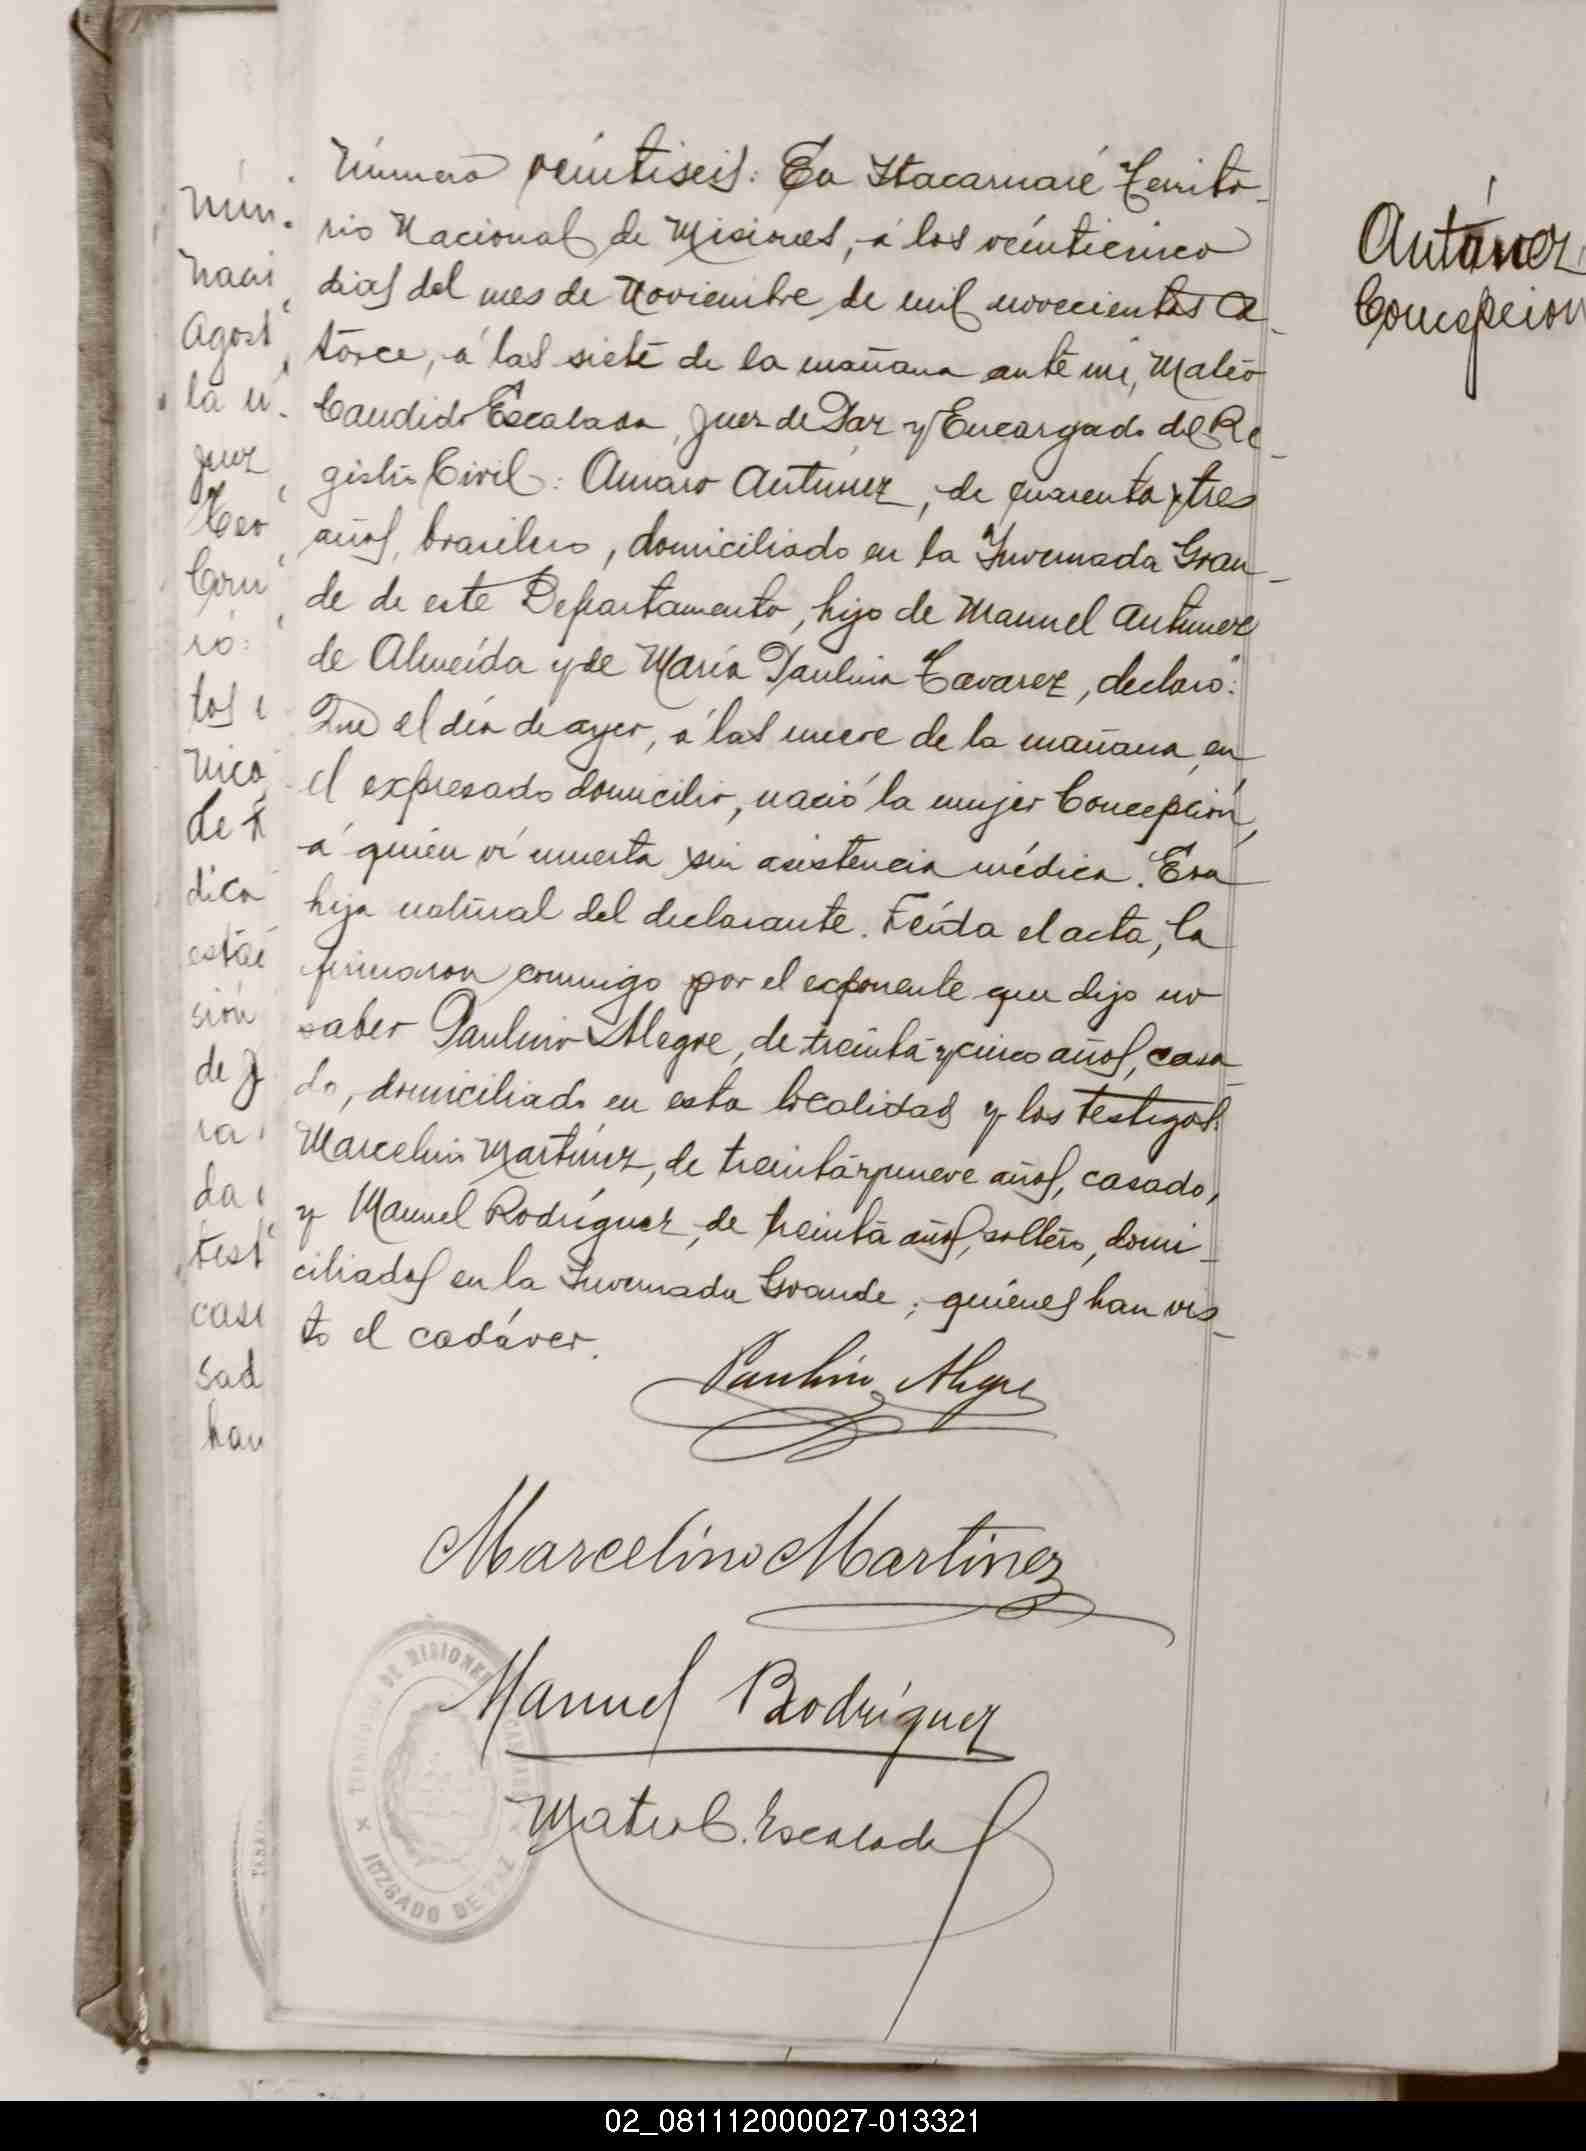 Número veintiseis: En Itacaruaré Territo-
rio Nacional de Misiones, á los veinticinco
dias del mes de Noviembre de mil novecientos ca-
torce, á las siete de la mañana ante mí, Mateo
Candido Escalada, Juez de Paz y Encargado del Re-
gistro Civil: Amaro Antúnez, de cuarenta y tres
años, brasilero, domiciliado en la Invernada Gran-
de de este Departamento, hijo de Manuel Antunez
de Almeida y de María Paulina Tavarez, declaró:
Que el día de ayer, á las nueve de la mañana, en
el expresado domicilio, nació la mujer Concepción,
á quién ví muerta sin asistencia médica. Era
hija natural del declarante. Leída el acta, la
firmaron conmigo por el exponente que dijo no
saber Paulino Alegre, de treinta y cinco años, casa-
do, domiciliado en esta localidad y los testigos:
Marcelino Martínez, de treinta y nueve años, casado,
y Manuel Rodríguez, de treinta años, soltero, domi-
ciliados en la Invernada Grande; quiénes han vis-
to el cadáver.
Paulino Alegre
Marcelino Martinez
Manuel Rodríguez
Mateo C. Escalada
JUZGADO DE PAZ
DE MISIONES
Antúnez,
Concepcion
Núm.
naci
Agost
la u
juez
Teo
Coru
ró:
tos
Nico
de
dica
estac
sión
de J
ra
da
test
cas
sad
han
02_081112000027-013321